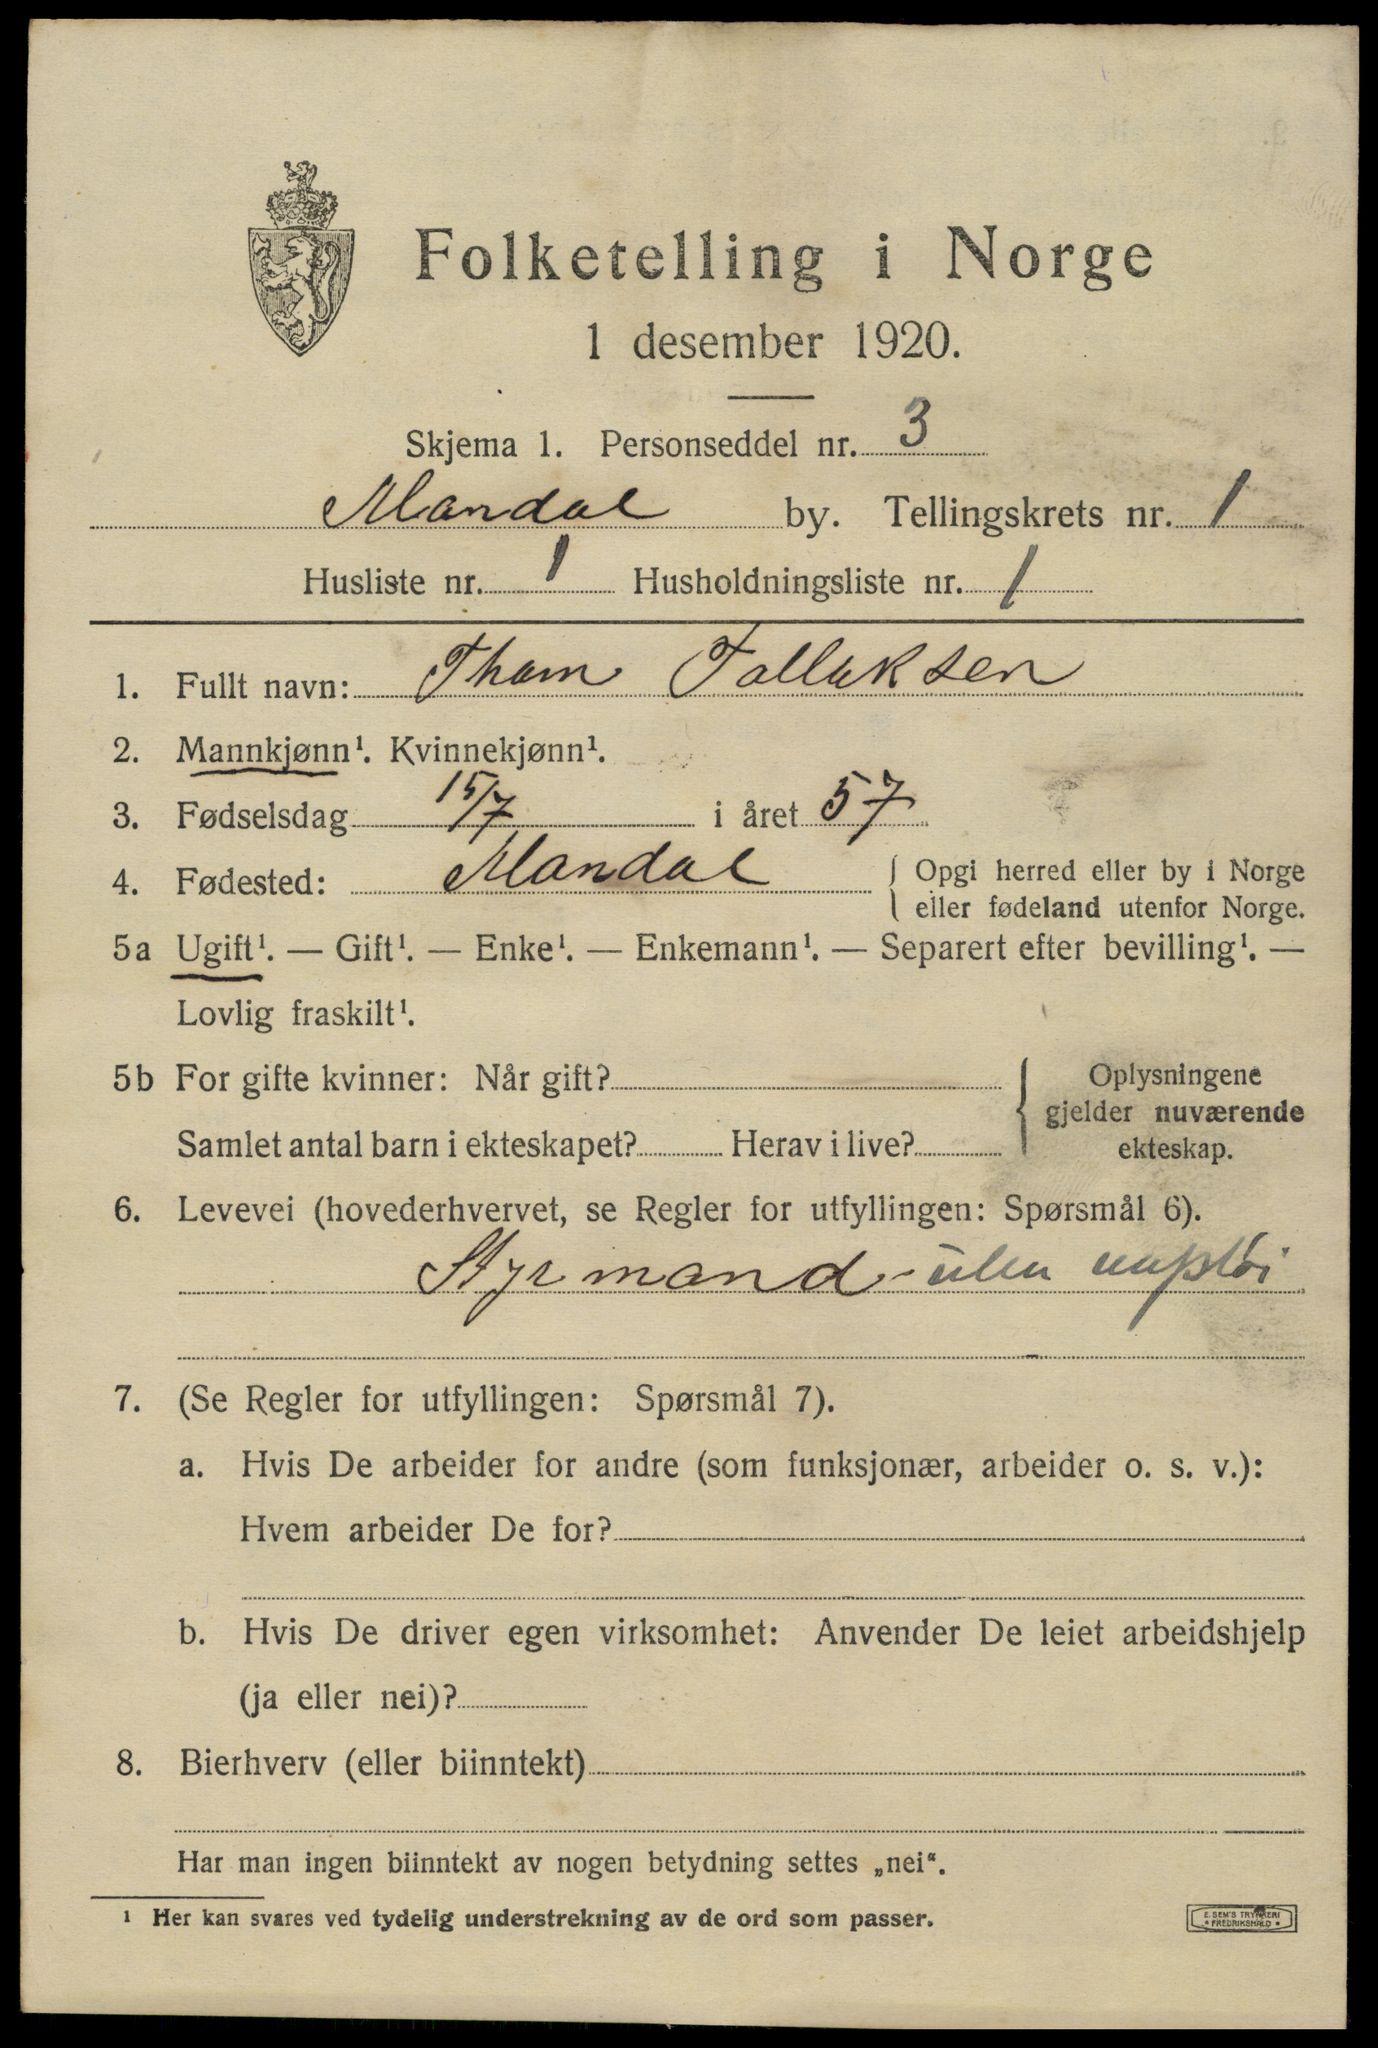 Folketelling i Norge
1 desember 1920.
Skjema 1. Personseddel nr. 3
Mandal by. Tellingskrets nr. 1
Husliste nr. 1 Husholdningsliste nr. 1
1. Fullt navn: Thom Tallaksen
2. Mannkjønn¹. Kvinnekjønn¹.
3. Fødselsdag 15/7 i året 57
4. Fødested: Mandal { Opgi herred eller by i Norge
eller fødeland utenfor Norge.
5a Ugift¹. — Gift¹. — Enke¹. — Enkemann¹. — Separert efter bevilling¹. —
Lovlig fraskilt¹.
5b For gifte kvinner: Når gift? { Oplysningene
gjelder nuværende
Samlet antal barn i ekteskapet? Herav i live? ekteskap.
6. Levevei (hovederhvervet, se Regler for utfyllingen: Spørsmål 6).
Styrmand - uten
7. (Se Regler for utfyllingen: Spørsmål 7).
a. Hvis De arbeider for andre (som funksjonær, arbeider o. s. v.):
Hvem arbeider De for?
b. Hvis De driver egen virksomhet: Anvender De leiet arbeidshjelp
(ja eller nei)?
8. Bierhverv (eller biinntekt)
Har man ingen biinntekt av nogen betydning settes „nei“.
¹ Her kan svares ved tydelig understrekning av de ord som passer.
E. SEM'S TRYKKERI
* FREDRIKSHALD *